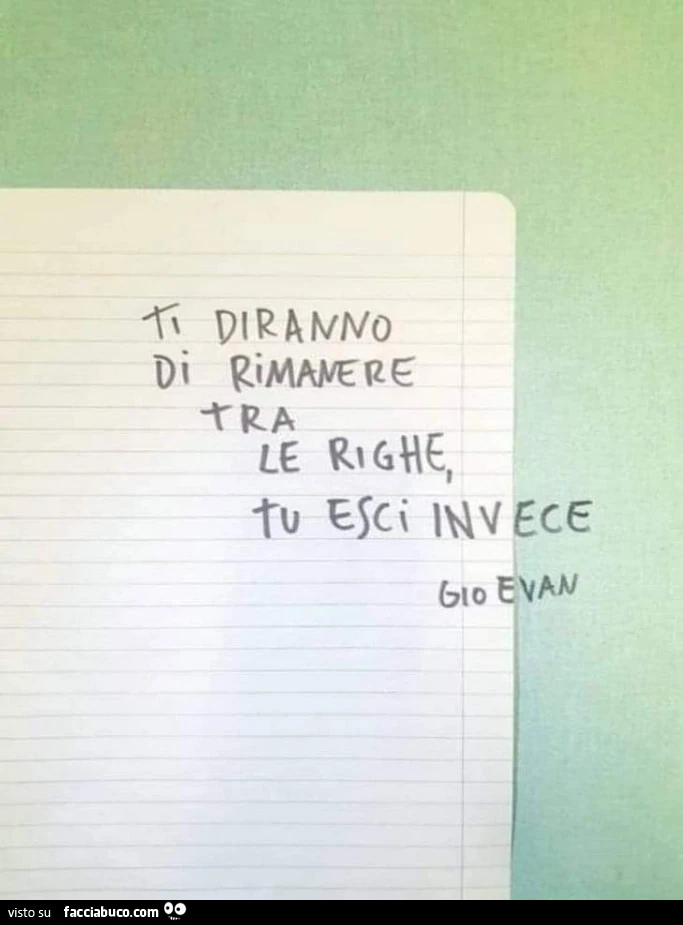 Ti DIRANNO
Di RiMANERE
TRA
LE RIGHE,
TU ESCi INVECE
GIO EVAN
visto su facciabuco.com